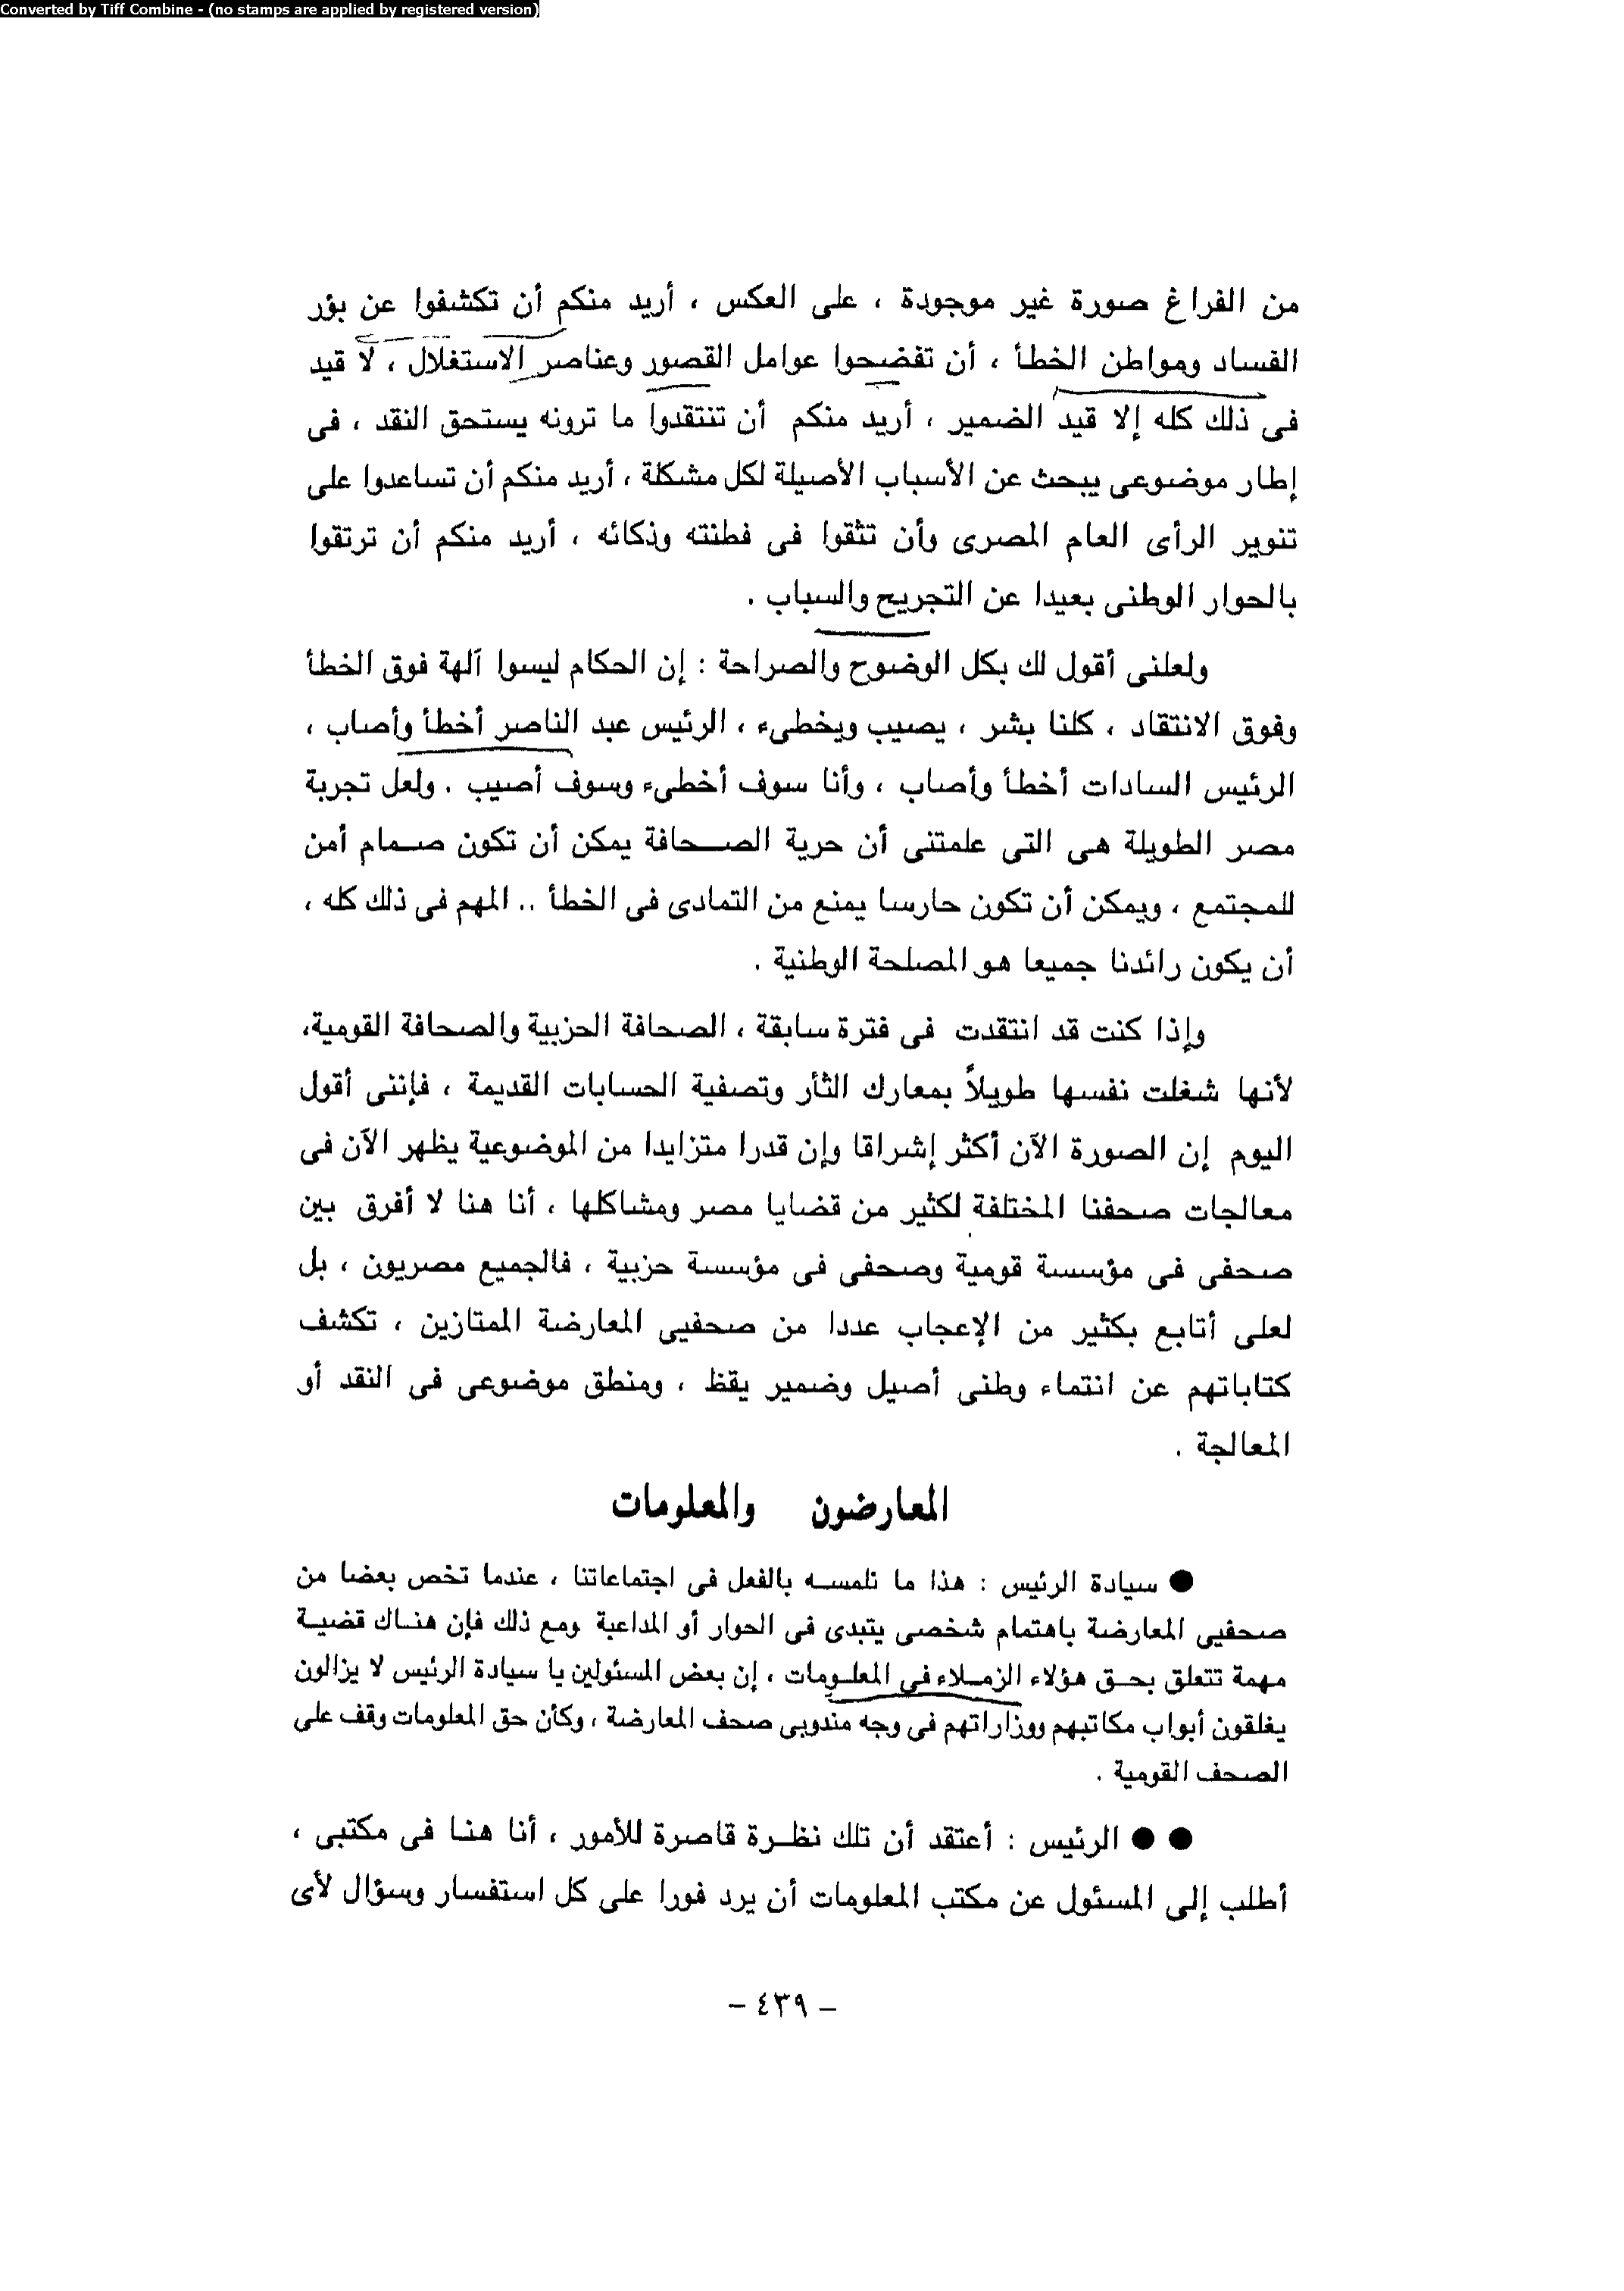 Converted by Tiff Combine - (no stamps are applied by registered version)
من الفراغ صورة غير موجودة ، على العكس ، أريد منكم أن تكشفوا عن بؤر
الفساد ومواطن الخطأ ، أن تفضحوا عوامل القصور وعناصر الاستغلال ، لا قيد
فى ذلك كله إلا قيد الضمير ، أريد منكم أن تنتقدوا ما ترونه يستحق النقد ، فى
إطار موضوعى يبحث عن الأسباب الأصيلة لكل مشكلة ، أريد منكم أن تساعدوا على
تنوير الرأى العام المصرى وأن تثقوا فى فطنته وذكائه ، أريد منكم أن ترتقوا
بالحوار الوطنى بعيدا عن التجريح والسباب .
ولعلنى أقول لك بكل الوضوح والصراحة : إن الحكام ليسوا آلهة فوق الخطأ
وفوق الانتقاد ، كلنا بشر ، يصيب ويخطىء ، الرئيس عبد الناصر أخطأ وأصاب ،
الرئيس السادات أخطأ وأصاب ، وأنا سوف أخطىء وسوف أصيب . ولعل تجربة
مصر الطويلة هى التى علمتنى أن حرية الصحافة يمكن أن تكون صمام أمن
للمجتمع ، ويمكن أن تكون حارسا يمنع من التمادى فى الخطأ .. المهم فى ذلك كله ،
أن يكون رائدنا جميعا هو المصلحة الوطنية .
وإذا كنت قد انتقدت فى فترة سابقة ، الصحافة الحزبية والصحافة القومية،
لأنها شغلت نفسها طويلاً بمعارك الثأر وتصفية الحسابات القديمة ، فإننى أقول
اليوم إن الصورة الآن أكثر إشراقا وإن قدرا متزايدا من الموضوعية يظهر الآن فى
معالجات صحفنا المختلفة لكثير من قضايا مصر ومشاكلها ، أنا هنا لا أفرق بين
صحفى فى مؤسسة قومية وصحفى فى مؤسسة حزبية ، فالجميع مصريون ، بل
لعلى أتابع بكثير من الإعجاب عددا من صحفيى المعارضة الممتازين ، تكشف
كتاباتهم عن انتماء وطنى أصيل وضمير يقظ ، ومنطق موضوعى فى النقد أو
المعالجة .
المعارضون والمعلومات
● سيادة الرئيس : هذا ما نلمسه بالفعل فى اجتماعاتنا ، عندما تخص بعضا من
صحفيى المعارضة باهتمام شخصى يتبدى فى الحوار أو المداعبة ومع ذلك فإن هناك قضية
مهمة تتعلق بحق هؤلاء الزملاء فى المعلومات ، إن بعض المسئولين يا سيادة الرئيس لا يزالون
يغلقون أبواب مكاتبهم ووزاراتهم فى وجه مندوبى صحف المعارضة ، وكأن حق المعلومات وقف على
الصحف القومية .
● ● الرئيس : أعتقد أن تلك نظرة قاصرة للأمور ، أنا هنا فى مكتبى ،
أطلب إلى المسئول عن مكتب المعلومات أن يرد فورا على كل استفسار وسؤال لأى
– ٤٣٩ –